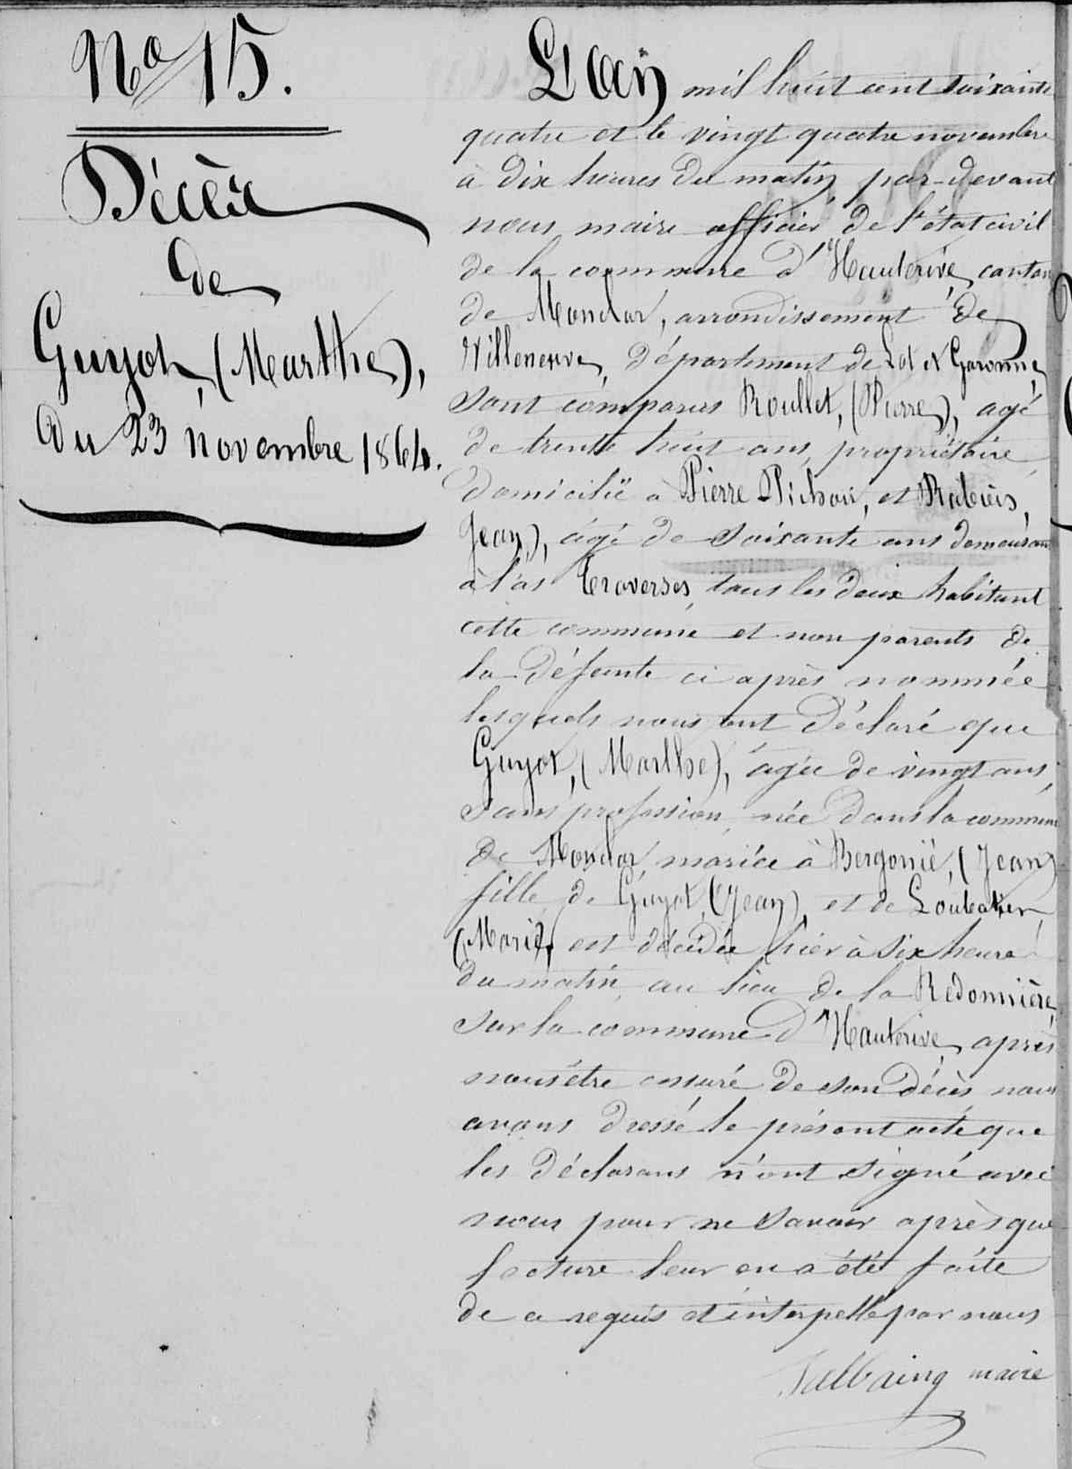 No 15.
Décès
de
Guyot, (Marthe),
du 23 novembre 1864.
L'an mil huit cent soixante
quatre et le vingt quatre novembre
à dix heures du matin par-devant
nous maire officier de l'état civil
de la commune d'Hauterive, canton
de Monclar, arrondissement de
Villeneuve, département de Lot et Garonne,
sont comparus Roullet, (Pierre), agé
de trente huit ans, propriétaire,
domicilié à Pierre Pichou, et Rabiers,
Jean), âgé de soixante ans demeurant
à Las Traverses, tous les deux habitant
cette commune et non parents de
la défunte ci après nommée
lesquels nous ont déclaré que
Guyot, (Marthe), âgée de vingt ans,
sans profession, née dans la commune
de Monclar, mariée à Bergonié, (Jean)
fille de Guyot, (Jean), et de
(Marie), est décédée hier à six heure
du matin, au lieu de la Redonnière,
sur la commune d'Hauterive, après
nous être assuré de son décès nous
avons dressé le présent acte que
les déclarans n'ont signé avec
nous pour ne savoir après que
lecture leur en a été faite
de ce requis et interpellé par nous
maire